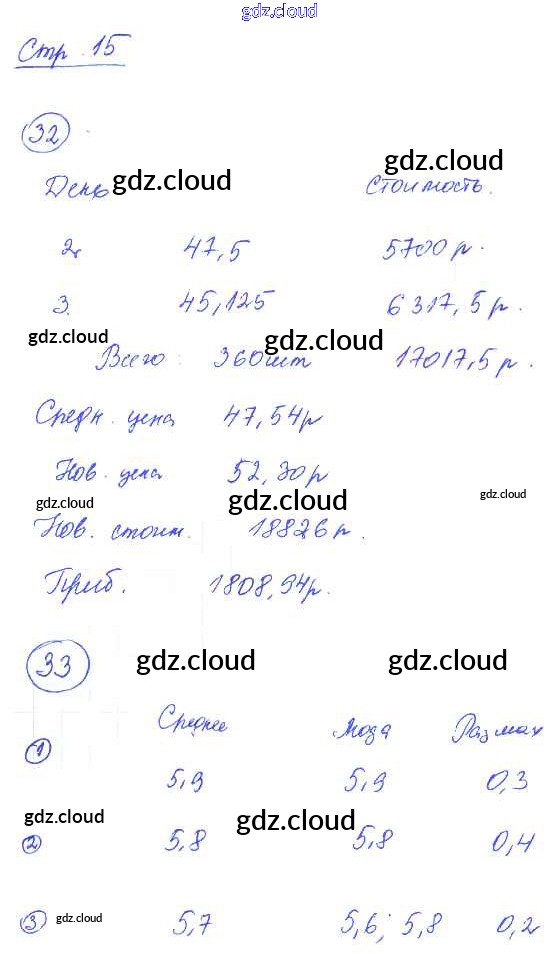 gdz.cloud
Стр. 15
32
gdz.cloud
День gdz.cloud Стоимость.
2. 47,5 5700 р.
3. 45,125 6317,5 р.
gdz.cloud gdz.cloud
Всего: 360шт 17017,5 р.
Средн. цена 47,54р
Нов. цена 52,30р
gdz.cloud gdz.cloud gdz.cloud
Нов. стоим. 18826 р.
Приб. 1808,94р.
33 gdz.cloud gdz.cloud
Среднее Мода Размах
1 5,9 5,9 0,3
gdz.cloud gdz.cloud
2 5,8 5,8 0,4
3 gdz.cloud 5,7 5,6; 5,8 0,2